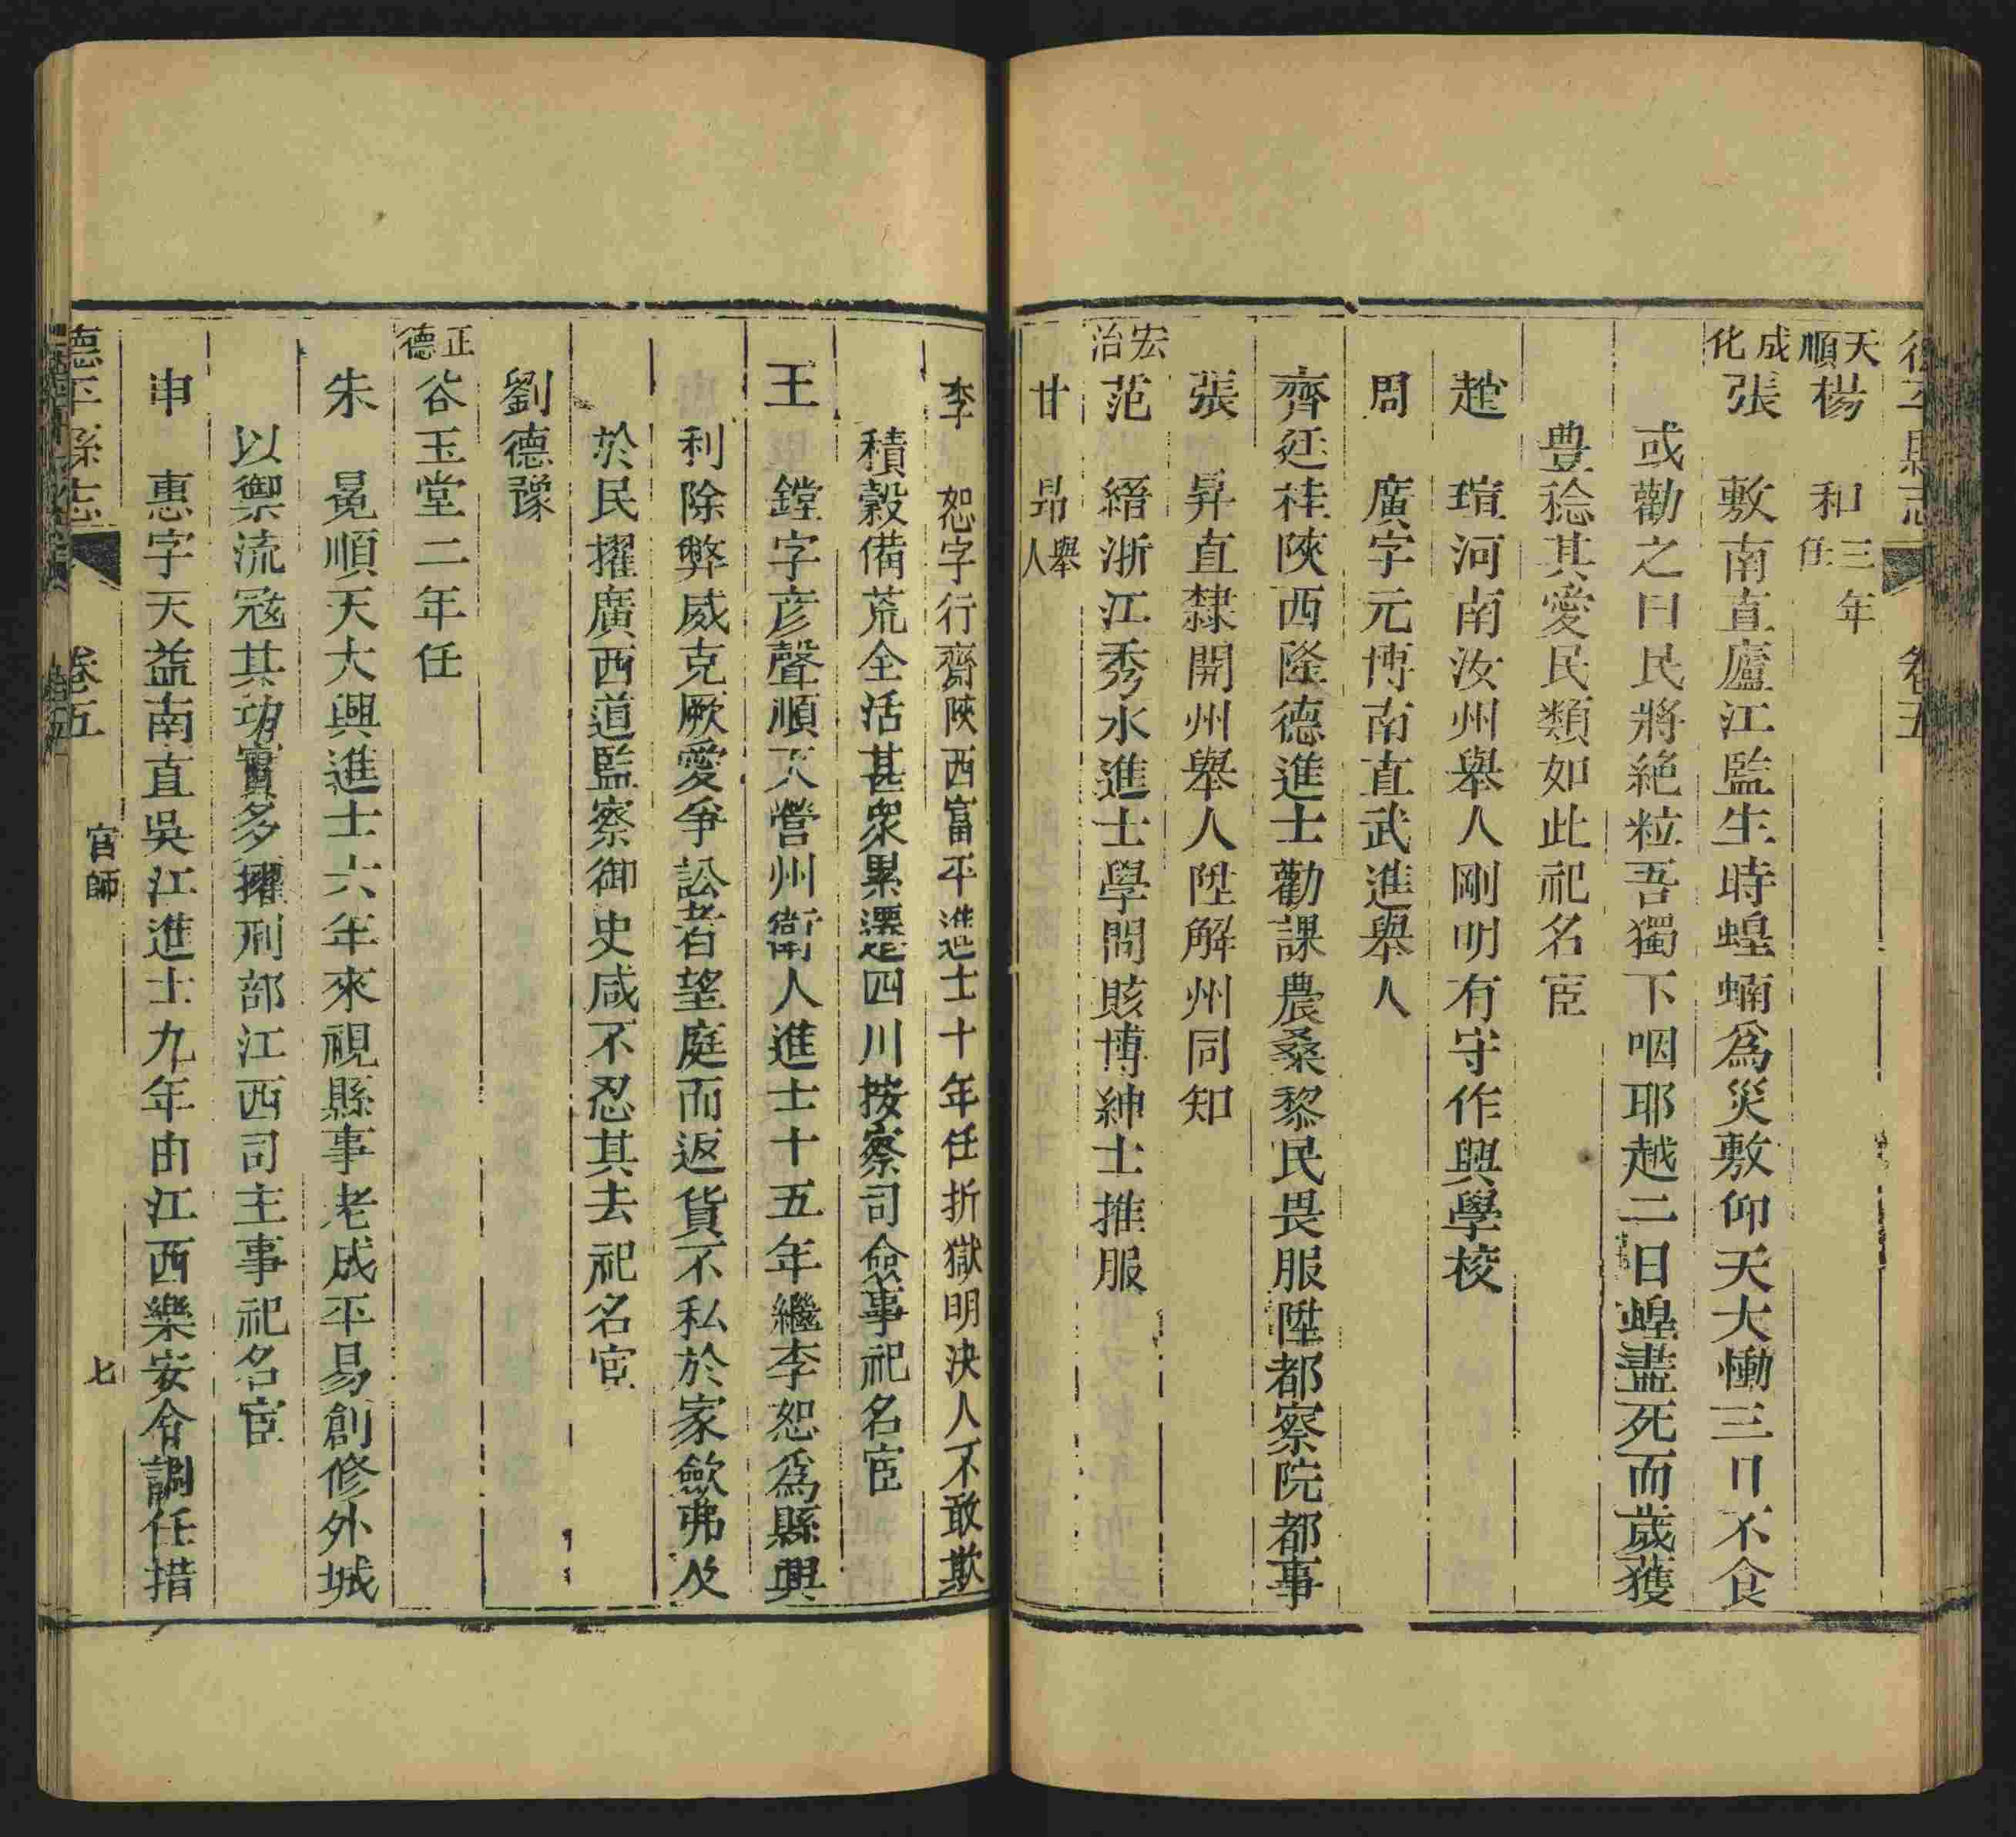 德平縣志 卷五
天順 楊 和 三年任
成化 張 敷南直廬江監生時蝗蝻為災敷仰天大慟三日不食
或勸之曰民將絶粒吾獨下咽耶越二日蝗盡死而歲獲
豊稔其愛民類如此祀名宦
趙 瑄河南汝州舉人剛明有守作興學校
周 廣字元博南直武進舉人
齊廷桂陝西隆德進士勸課農桑黎民畏服陞都察院都事
張 昇直隸開州舉人陞解州同知
宏治 范 縉浙江秀水進士學問賅博紳士推服
甘 昻舉人
李 恕字行齋陝西富平進士十年任折獄明決人不敢欺
積穀備荒全活甚衆累遷四川按察司僉事祀名宦
王 鏜字彦聲順天營州衛人進士十五年繼李恕為縣興
利除弊威克厥愛爭訟者望庭而返貨不私於家歛弗及
於民擢廣西道監察御史咸不忍其去祀名宦
劉德豫
正德 谷玉堂二年任
朱 冕順天大興進士六年來視縣事老成平易創修外城
以禦流寇其功實多擢刑部江西司主事祀名宦
申 惠字天益南直吳江進士九年由江西樂安令調任措
德平縣志 卷五 官師 七